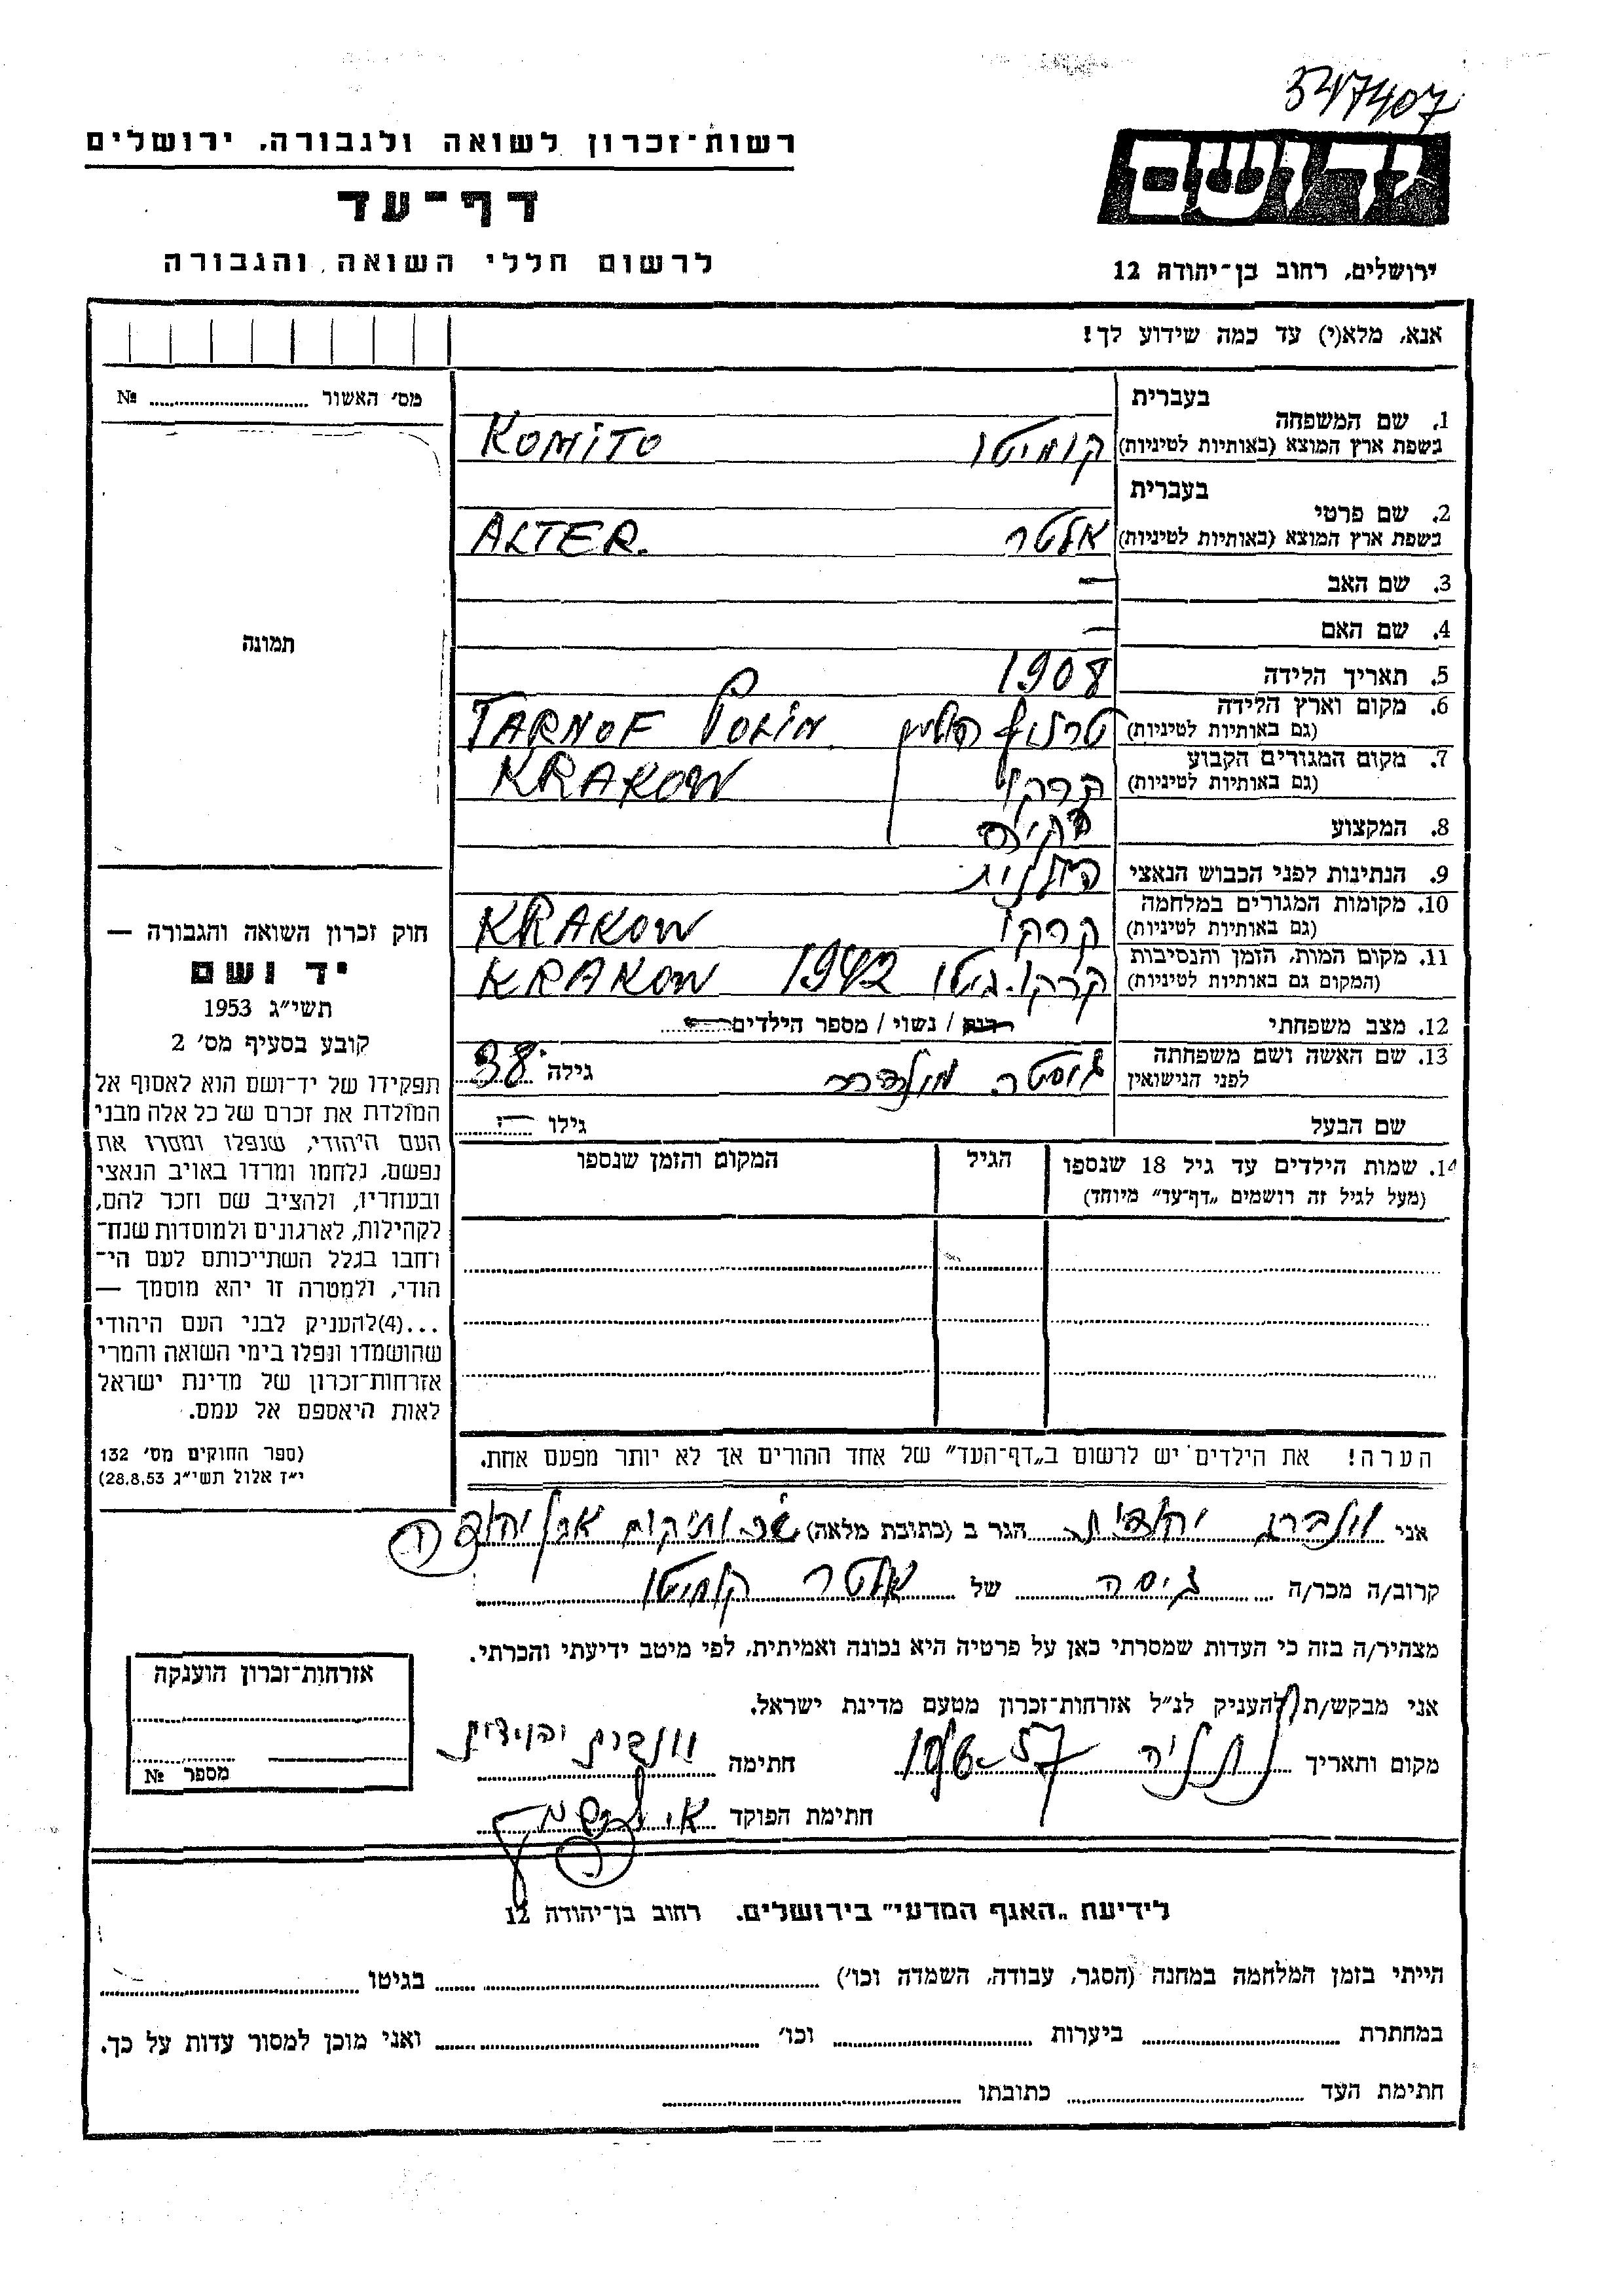 347407
יד ושם
ירושלים, רחוב בן־יהודה 12
רשות־זכרון לשואה ולגבורה, ירושלים
דף־עד
לרשום חללי השואה והגבורה
אנא, מלא(י) עד כמה שידוע לך!
מס׳ האשור № 
תמונה
חוק זכרון השואה והגבורה —
יד ושם
תשי״ג 1953
קובע בסעיף מס׳ 2
תפקידו של יד־ושם הוא לאסוף אל
המולדת את זכרם של כל אלה מבני
העם היהודי, שנפלו ומסרו את
נפשם, נלחמו ומרדו באויב הנאצי
ובעוזריו, ולהציב שם וזכר להם,
לקהילות, לארגונים ולמוסדות שנח־
רחבו בגלל השתייכותם לעם הי־
הודי, ולמטרה זו יהא מוסמך —
...(4)להעניק לבני העם היהודי
שהושמדו ונפלו בימי השואה והמרי
אזרחות־זכרון של מדינת ישראל
לאות היאספם אל עמם.
(ספר החוקים מס׳ 132
י״ז אלול תשי״ג 28.8.53)
בעברית
1. שם המשפחה
בשפת ארץ המוצא (באותיות לטיניות) קומיטו KOMITO
בעברית
2. שם פרטי
בשפת ארץ המוצא (באותיות לטיניות) אלטר ALTER.
3. שם האב —
4. שם האם —
5. תאריך הלידה 1908
6. מקום וארץ הלידה
(גם באותיות לטיניות) טרנוף פולין TARNOF POLIN
7. מקום המגורים הקבוע
(גם באותיות לטיניות) קרקו KRAKOW
8. המקצוע
9. הנתינות לפני הכבוש הנאצי פולנית
10. מקומות המגורים במלחמה
(גם באותיות לטיניות) קרקו KRAKOW
11. מקום המות, הזמן והנסיבות
(המקום גם באותיות לטיניות) קרקו. גיטו 1942 KRAKOW
12. מצב משפחתי רווק / נשוי / מספר הילדים
13. שם האשה ושם משפחתה
לפני הנישואין גוסטה גילה 38
שם הבעל גילו —
14. שמות הילדים עד גיל 18 שנספו הגיל המקום והזמן שנספו
(מעל לגיל זה רושמים „דף־עד״ מיוחד)
הערה! את הילדים יש לרשום ב„דף־העד״ של אחד ההורים אך לא יותר מפעם אחת.
אני יהודית הגר ב (כתובת מלאה) שכ ותיקים אבן יהודה
קרוב/ה מכר/ה גיסה של אלטר קומיטו
מצהיר/ה בזה כי העדות שמסרתי כאן על פרטיה היא נכונה ואמיתית, לפי מיטב ידיעתי והכרתי.
אני מבקש/ת להעניק לנ״ל אזרחות־זכרון מטעם מדינת ישראל.
מקום ותאריך נתניה חתימה יהודית
חתימת הפוקד
אזרחות־זכרון הוענקה
מספר №
לידיעת „האגף המדעי״ בירושלים. רחוב בן־יהודה 12
הייתי בזמן המלחמה במחנה (הסגר, עבודה, השמדה וכו׳) בגיטו
במחתרת ביערות וכו׳ ואני מוכן למסור עדות על כך.
חתימת העד כתובתו